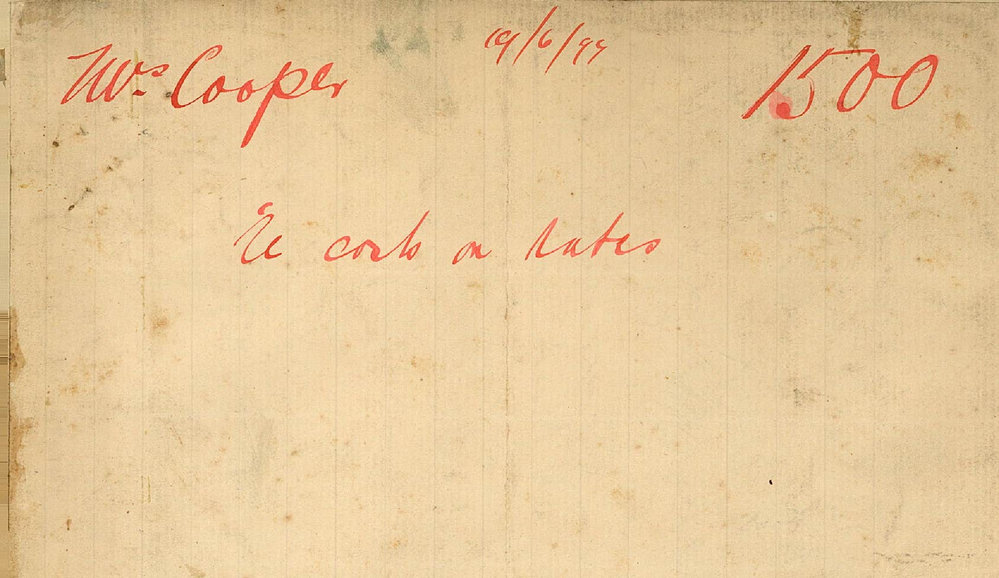 Mrs. Cooper 19/6/99 1500
Re costs on rates